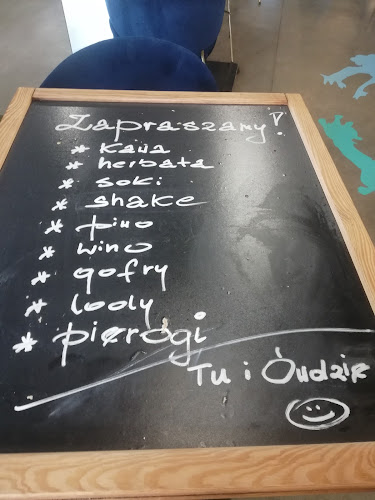 Zapraszamy!
* kawa
* herbata
* soki
* shake
* piwo
* wino
* gofry
* lody
* pierogi
Tu i Ówdzie